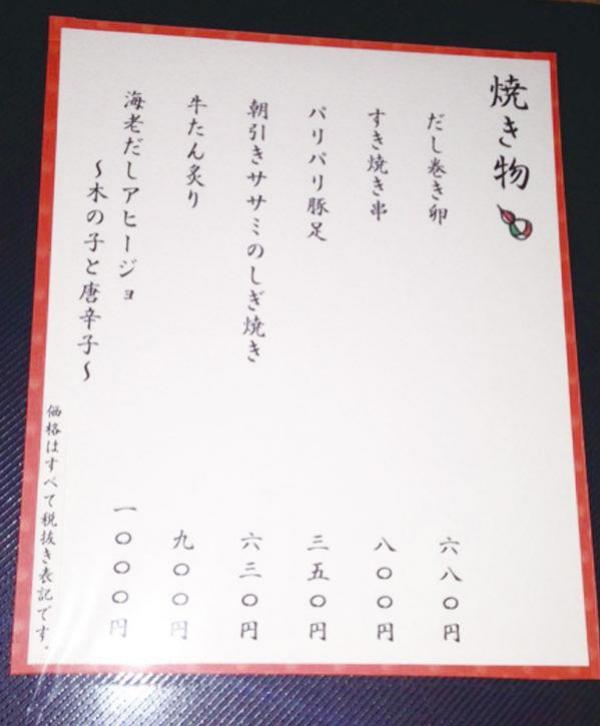 焼き物
だし巻き卵 六八〇円
すき焼き串 八〇〇円
パリパリ豚足 三五〇円
朝引きササミのしぎ焼き 六三〇円
牛たん炙り 九〇〇円
海老だしアヒージョ 一〇〇〇円
〜木の子と唐辛子〜
価格はすべて税抜き表記です。